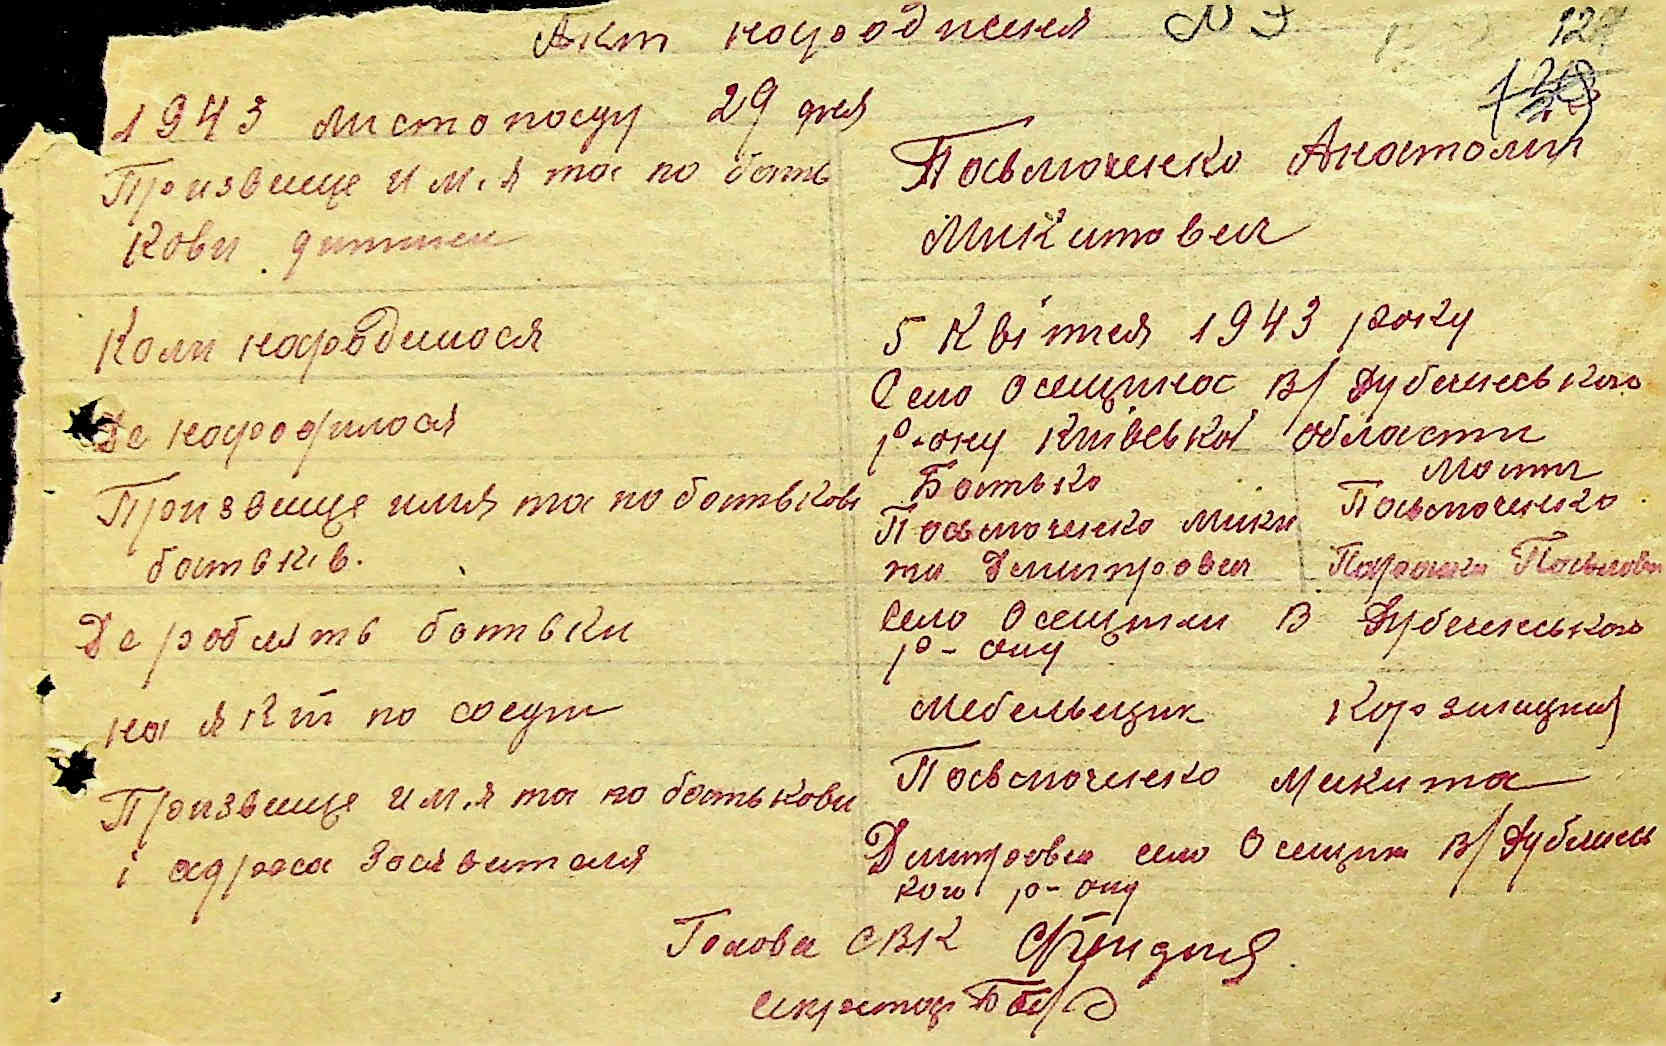 Акт народження № 7
124
1943 листопаду 29 дня
Призвеще им.я та по бать
кови дитини
Павлюченко Анатолий
Микитович
Коли народилося
5 Квітня 1943 року
Де народилося
Село Осещина В/Дубечнського
р-ону Київської области
Призвеще имля та по батькови
батьків.
Батько
Павлюченко Мики
та Дмитрович
Мати
Павлюченко
Парашка Павлови
Де роблять батьки
село Осещини В Дубечнського
р-ону
на якій по саади
Мебельщик
Призвеще им.я та по батькови
і адреса Заявителя
Павлюченко Микита
Дмитрович село Осещин В/Дублинсь
кого р-ону
Голова СВК
Секретар